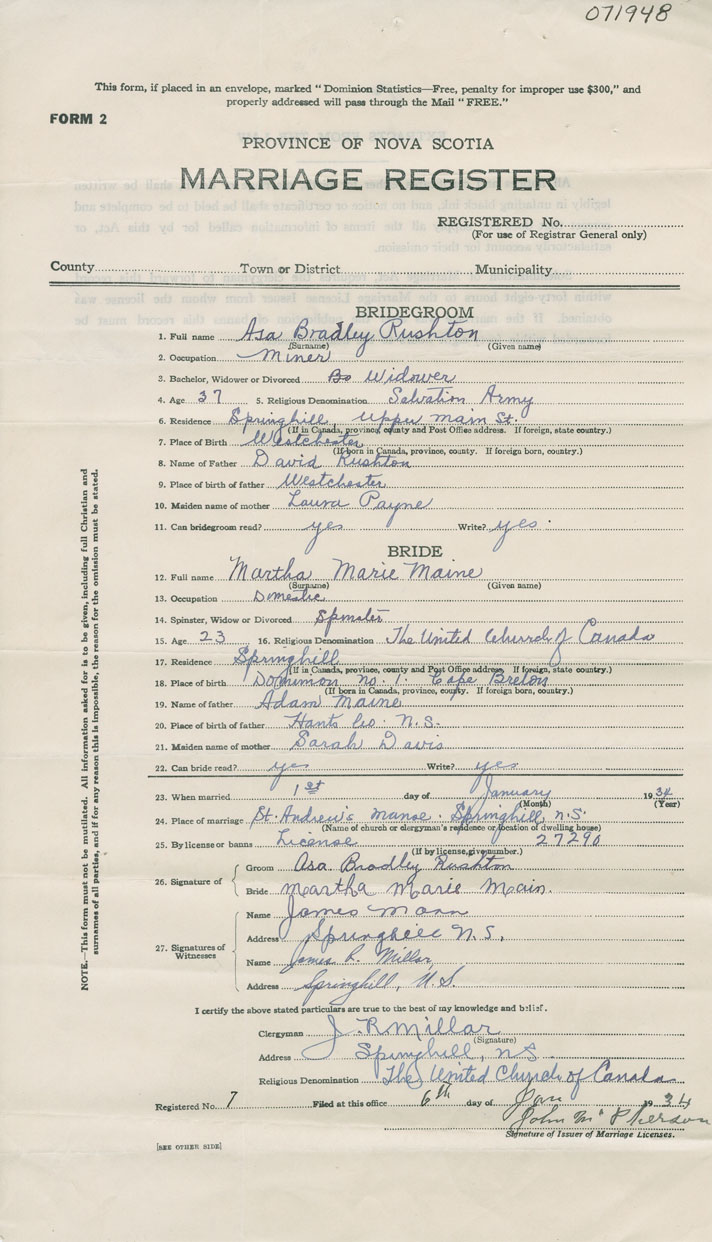 071948
This form, if placed in an envelope, marked "Dominion Statistics—Free, penalty for improper use $300," and
properly addressed will pass through the Mail "FREE."
FORM 2
PROVINCE OF NOVA SCOTIA
MARRIAGE REGISTER
REGISTERED No.
(For use of Registrar General only)
County Town or District Municipality
BRIDEGROOM
1. Full name Asa Bradley Rushton
(Surname) (Given name)
2. Occupation Miner
3. Bachelor, Widower or Divorced Widower
4. Age 37 5. Religious Denomination Salvation Army
6. Residence Springhill, Upper Main St.
(If in Canada, province, county and Post Office address. If foreign, state country.)
7. Place of Birth Westchester
(If born in Canada, province, county. If foreign born, country.)
8. Name of Father David Rushton
9. Place of birth of father Westchester
10. Maiden name of mother Laura Payne
11. Can bridegroom read? yes Write? yes
BRIDE
12. Full name Martha Marie Maine
(Surname) (Given name)
13. Occupation Domestic
14. Spinster, Widow or Divorced Spinster
15. Age 23 16. Religious Denomination The United Church of Canada
17. Residence Springhill
(If in Canada, province, county and Post Office address. If foreign, state country.)
18. Place of birth Dominion No. 1. Cape Breton
(If born in Canada, province, county. If foreign born, country.)
19. Name of father Adam Maine
20. Place of birth of father Hants Co. N.S.
21. Maiden name of mother Sarah Davis
22. Can bride read? yes Write? yes
23. When married 1st day of January 1934
(Month) (Year)
24. Place of marriage St. Andrew's Manse. Springhill, N.S.
(Name of church or clergyman's residence or location of dwelling house)
25. By license or banns License 27290
(If by license, give number.)
26. Signature of
Groom Asa Bradley Rushton
Bride Martha Marie Main.
27. Signatures of
Witnesses
Name James Mann
Address Springhill N.S.
Name James R. Millar
Address Springhill, N.S.
I certify the above stated particulars are true to the best of my knowledge and belief.
Clergyman J. R Millar
(Signature)
Address Springhill, N.S.
Religious Denomination The United Church of Canada
Registered No. 7 Filed at this office 6th day of Jan 1934
John McPherson
Signature of Issuer of Marriage Licenses.
[SEE OTHER SIDE]
NOTE.—This form must not be mutilated. All information asked for is to be given, including full Christian and
surnames of all parties, and if for any reason this is impossible, the reason for the omission must be stated.